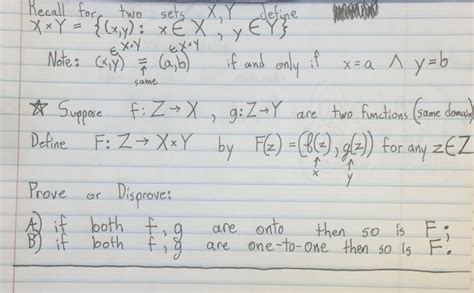 Recall for two sets X, Y define
X×Y = {(x,y): x∈X, y∈Y}
∈X×Y ∈X×Y
Note: (x,y) = (a,b) if and only if x=a ∧ y=b
↑
same
☆ Suppose f: Z→X, g: Z→Y are two functions (same domain)
Define F: Z→X×Y by F(z) = (f(z), g(z)) for any z∈Z
↑ ↑
x y
Prove or Disprove:
A) if both f, g are onto then so is F;
B) if both f, g are one-to-one then so is F.